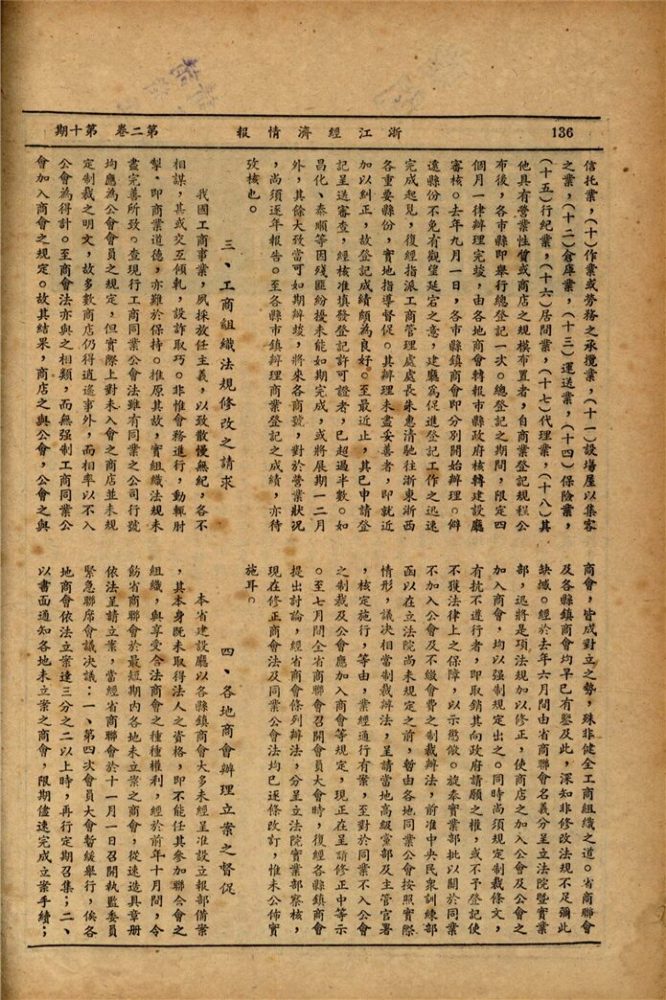 136
浙江經濟情報
第二卷 第十期
信托業，(十)作業或勞務之承攬業，(十一)設場屋以集客
之業，(十二)倉庫業，(十三)運送業，(十四)保險業，
(十五)行紀業，(十六)居間業，(十七)代理業，(十八)其
他具有營業性質或商店之規模布置者，自商業登記規程公
布後，各市縣即舉行總登記一次。總登記之期間，限定四
個月一律辦理完竣，由各地商會轉報市縣政府核轉建設廳
審核。去年九月一日，各市縣鎮商會即分別開始辦理。僻
遠縣份不免有觀望延宕之意，建廳為促進登記工作之迅速
完成起見，復經指派工商管理處處長朱惠清馳往浙東浙西
各重要縣份，實地指導督促。其辦理未盡妥善者，即就近
加以糾正，故登記成績頗為良好。至最近止，其已申請登
記呈送審查，經核准填發登記許可證者，已超過半數。如
昌化、泰順等因殘匪紛擾未能如期完成，或將展期一二月
外，其餘大致當可如期辦竣，將來各商號，對於營業狀況
，尚須逐年報告。至各縣市鎮辦理商業登記之成績，亦待
攷核也。
三、工商組織法規修改之請求
我國工商事業，夙採放任主義，以致散慢無紀，各不
相謀，其或交互傾軋，設詐取巧。非惟會務進行，動輒肘
掣，即商業道德，亦難於保持。推原其故，實組織法規未
盡完善所致。查現行工商同業公會法雖有同業之公司行號
均應為公會會員之規定，但實際上對未入會之商店並未規
定制裁之明文，故多數商店仍得逍遙事外，而相率以不入
公會為得計。至商會法亦與之相類，而無强制工商同業公
會加入商會之規定。故其結果，商店之與公會，公會之與
商會，皆成對立之勢，殊非健全工商組織之道。省商聯會
及各縣鎮商會均早已有鑒及此，深知非修改法規不足彌此
缺憾。經於去年六月間由省商聯會名義分呈立法院暨實業
部，迅將是項法規加以修正，使商店之加入公會及公會之
加入商會，均以强制規定出之。同時尚須規定制裁條文，
有抗不遵行者，即取銷其向政府請願之權，或不予登記使
不獲法律上之保障，以示懲儆。旋奉實業部批以關於同業
不加入公會及不繳會費之制裁辦法，前准中央民衆訓練部
函以在立法院尚未規定之前，暫由各地同業公會按照實際
情形，議決相當制裁辦法，呈請當地高級黨部及主管官署
，核定施行，等由，業經通行有案，至對於同業不入公會
之制裁及公會應加入商會等規定，現正在呈請修正中等示
。至七月間全省商聯會召開會員大會時，復經各縣鎮商會
提出討論，經省商會條列辦法，分呈立法院實業部察核，
現在修正商會法及同業公會法均已逐條改訂，惟未公佈實
施耳。
四、各地商會辦理立案之督促
本省建設廳以各縣鎮商會大多未經呈准設立報部備案
，其本身既未取得法人之資格，即不能任其參加聯合會之
組織，與享受合法商會之種種權利，經於前年十月間，令
飭省商聯會於最短期內各地未立案之商會，從速造具章册
依法呈請立案，當經省商聯會於十一月一日召開執監委員
緊急聯席會議決議：一、第四次會員大會暫緩舉行，俟各
地商會依法立案達三分之二以上時，再行定期召集；二、
以書面通知各地未立案之商會，限期儘速完成立案手續；